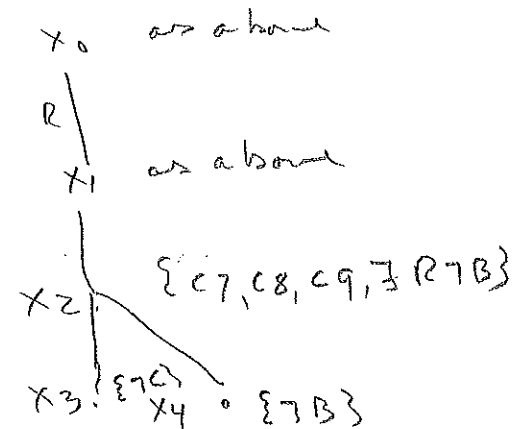 x0 as above
R
x1 as above
{C7, C8, C9, ∃R¬B}
x2
x3 {¬C} x4 {¬B}